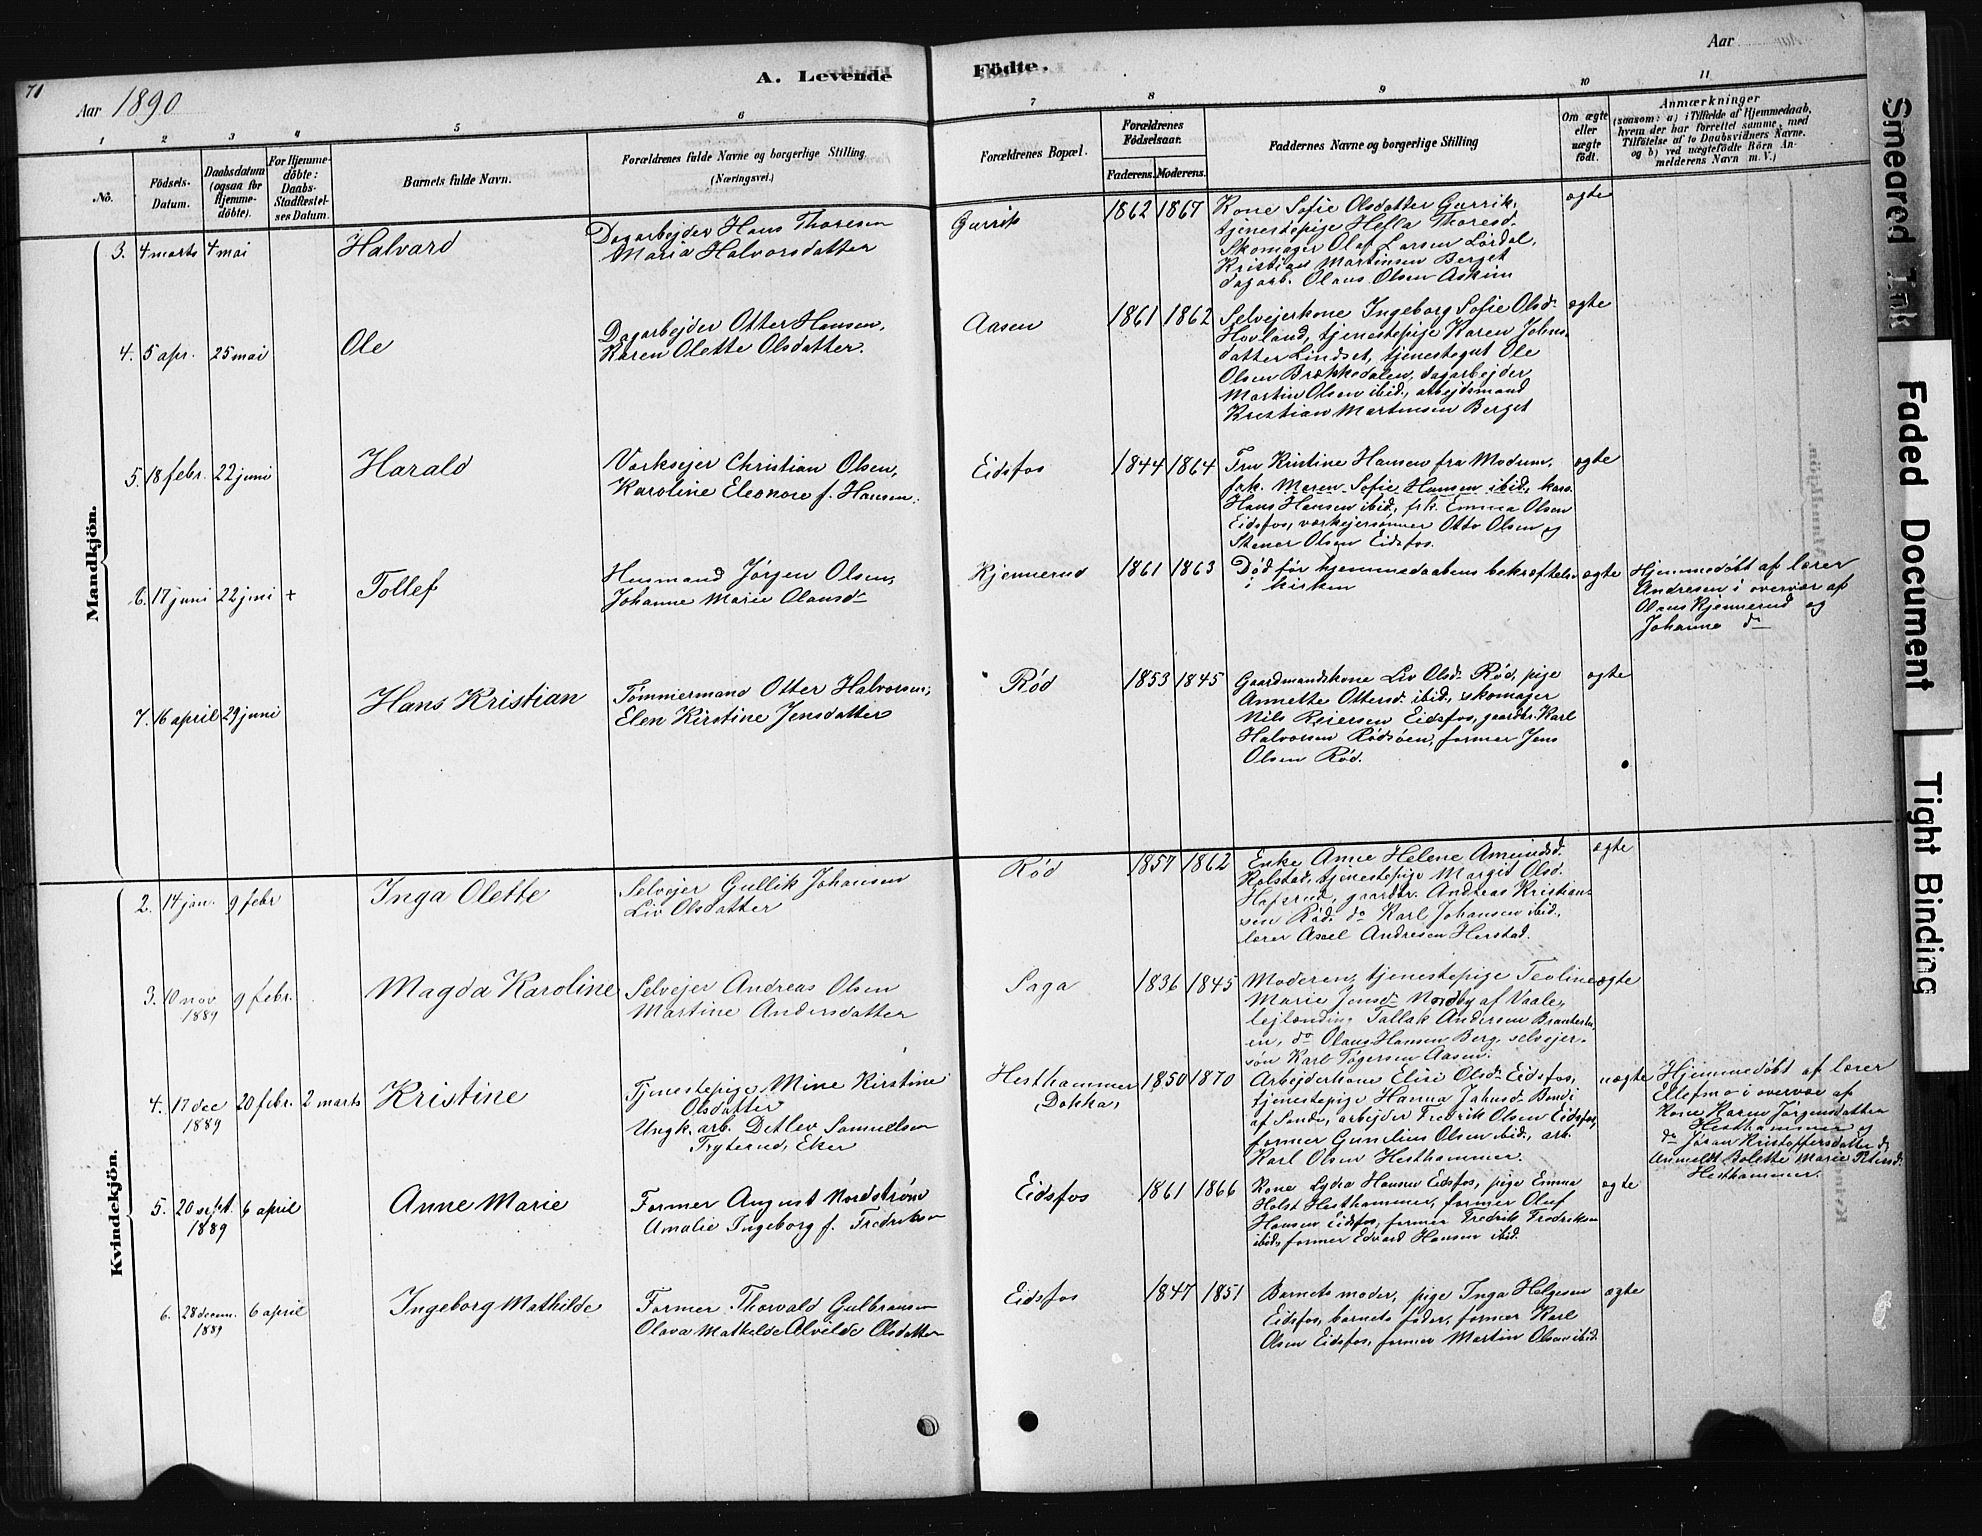 71
Aar 1890
A. Levende
Födte.
Aar
1 2 3 4 5 6 7 8 9 10 11
No.
Födsels-
Datum.
Daabsdatum
(ogsaa for
Hjemme-
döbte).
For Hjemme-
döbte:
Daabs-
Stadfæstel-
ses Datum.
Barnets fulde Navn.
Forældrenes fulde Navne og borgerlige Stilling
(Næringsvei.)
Forældrenes Bopæl.
Forældrenes
Födselsaar.
Faderens. Moderens.
Faddernes Navne og borgerlige Stilling
Om ægte
eller
uægte
födt.
Anmærkninger
(saasom: a) i Tilfælde af Hjemmedaab,
hvem der har forrettet samme, med
Tilföielse af to Daabsvidners Navne.
og b) ved uægtefödte Börn An-
melderens Navn m.V.)
Mandkjön.
3. 4 marts 4 mai
Halvard
Dagarbejder Hans Thoresen
Maria Halvorsdatter
Gurrik
1862 1867
Kone Sofie Olsdatter Gurrik,
tjenestepige Hella Thoresd.
Skomager Olaf Larsen Lördal,
Kristian Martinsen Berget
dagarb. Olaus Olsen Askim
ægte
4. 5 apr. 25 mai
Ole
Dagarbejder Otter Hansen,
Karen Olette Olsdatter.
Aasen
1861 1862
Selvejerkone Ingeborg Sofie Olsd.
Hovland, tjenestepige Karen Johns
datter Lindset, tjenestegut Ole
Olsen Brækkedalen, dagarbejder
Martin Olsen ibid., arbejdsmand
Kristian Martinsen Berget
ægte
5. 18 febr. 22 juni
Harald
Værksejer Christian Olsen,
Karoline Eleonore f. Hansen.
Eidsfos
1844 1864
Fru Kristine Hansen fra Modum,
frk. Maren Sofie Hansen ibid.,
Hans Hansen ibid., frk. Emma Olsen
Eidsfos, værkejersønner Otto Olsen og
Stener Olsen Eidsfos.
ægte
6. 17 juni 22 juni +
Tollef
Husmand Jørgen Olsen,
Johanne Marie Olausd.
Kjennerud
1861 1863
Død før hjemmedaabens bekræftelse
i kirken
ægte
Hjemmedöbt af lærer
Andresen i overvær af
Olaus Kjennerud og
Johanne do
7. 16 april 29 juni
Hans Kristian
Tømmermand Otter Halvorsen,
Elen Kirstine Jensdatter
Rød
1853 1845
Gaardmandskone Liv Olsd. Rød, pige
Annette Ottersd. ibid., skomager
Nils Reiersen Eidsfos, gaardbr. Karl
Halvorsen Rødsøen, former Jens
Olsen Rød.
ægte
Kvindekjön.
2. 14 jan. 9 febr
Inga Olette
Selvejer Gullik Johansen
Liv Olsdatter
Rød
1857 1862
Enke Anne Helene Amundsd.
Kolstad, tjenestepige Margit Olsd.
Hafsrud, gaardbr. Andreas Kristian-
sen Rød. do Karl Johansen ibid.,
lærer Axel Andresen Herstad.
ægte
3. 10 nov 9 febr.
1889
Magda Karoline
Selvejer Andreas Olsen
Martine Andersdatter
Saga
1836 1845
Moderen, tjenestepige Teoline
Marie Jensd. Nordby af Vaale,
lejlending Tallak Andersen
en, do Olaus Hansen Berg, selvejer-
søn Karl Tøgersen Aasen.
ægte
4. 17 dec 20 febr. 2 marts
1889
Kristine
Tjenestepige Mine Kirstine
Olsdatter
Ungk. arb. Detlev Samuelsen
Fryterud, Eker
Hesthammer
(Dokka)
1850 1870
Arbejderkone Elisi Olsd. Eidsfos,
tjenestepige Hanna Jahnsd. Bondi
af Sande, arbejder Fredrik Olsen Eidsfos,
former Gunelius Olsen ibid., arb.
Karl Olsen Hesthammer.
uægte
Hjemmedöbt af lærer
Ellefmo i overvær af
Kone Karen Jørgensdatter
Hesthammer og
do Johan Kristoffersdatter do
Anmeldt Bolette Marie Petersd.
Hesthammer.
5. 20 sept. 6 april
1889
Anne Marie
Former August Nordstrøm
Amalie Ingeborg f. Fredriksen
Eidsfos
1861 1866
Kone Lydia Hansen Eidsfos, pige Emma
Holst Hesthammer, former Oluf
Hansen Eidsfos, former Fredrik Fredriksen
ibid., former Edvard Hansen ibid.
ægte
6. 28 decem. 6 april
1889
Ingeborg Mathilde
Former Thorvald Gulbransen
Olava Mathilde Alvilde Olsdatter
Eidsfos
1847 1851
Barnets moder, pige Inga Helgesen
Eidsfos, barnets fader, former Karl
Olsen Eidsfos, former Martin Olsen ibid.
ægte
Smeared Ink
Faded Document
Tight Binding